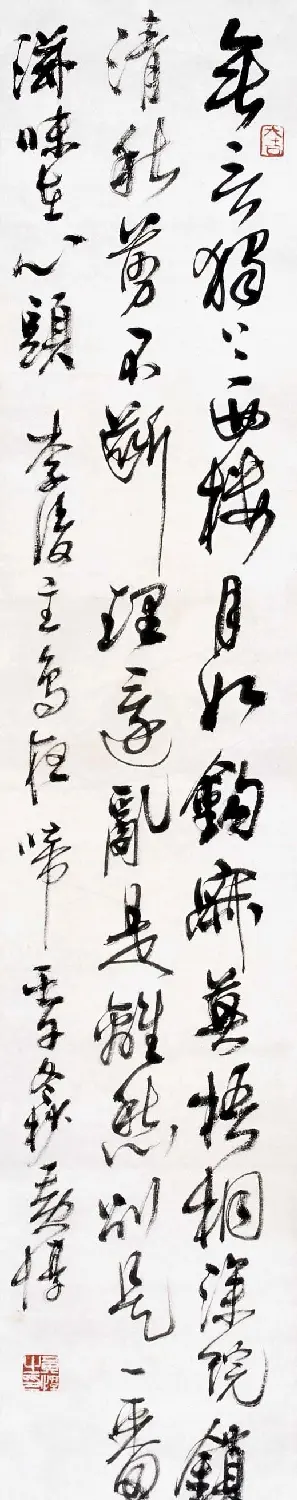 無言獨上西樓月如鉤寂寞梧桐深院鎖
清秋剪不斷理還亂是離愁別是一番
滋味在心頭 李後主烏夜啼